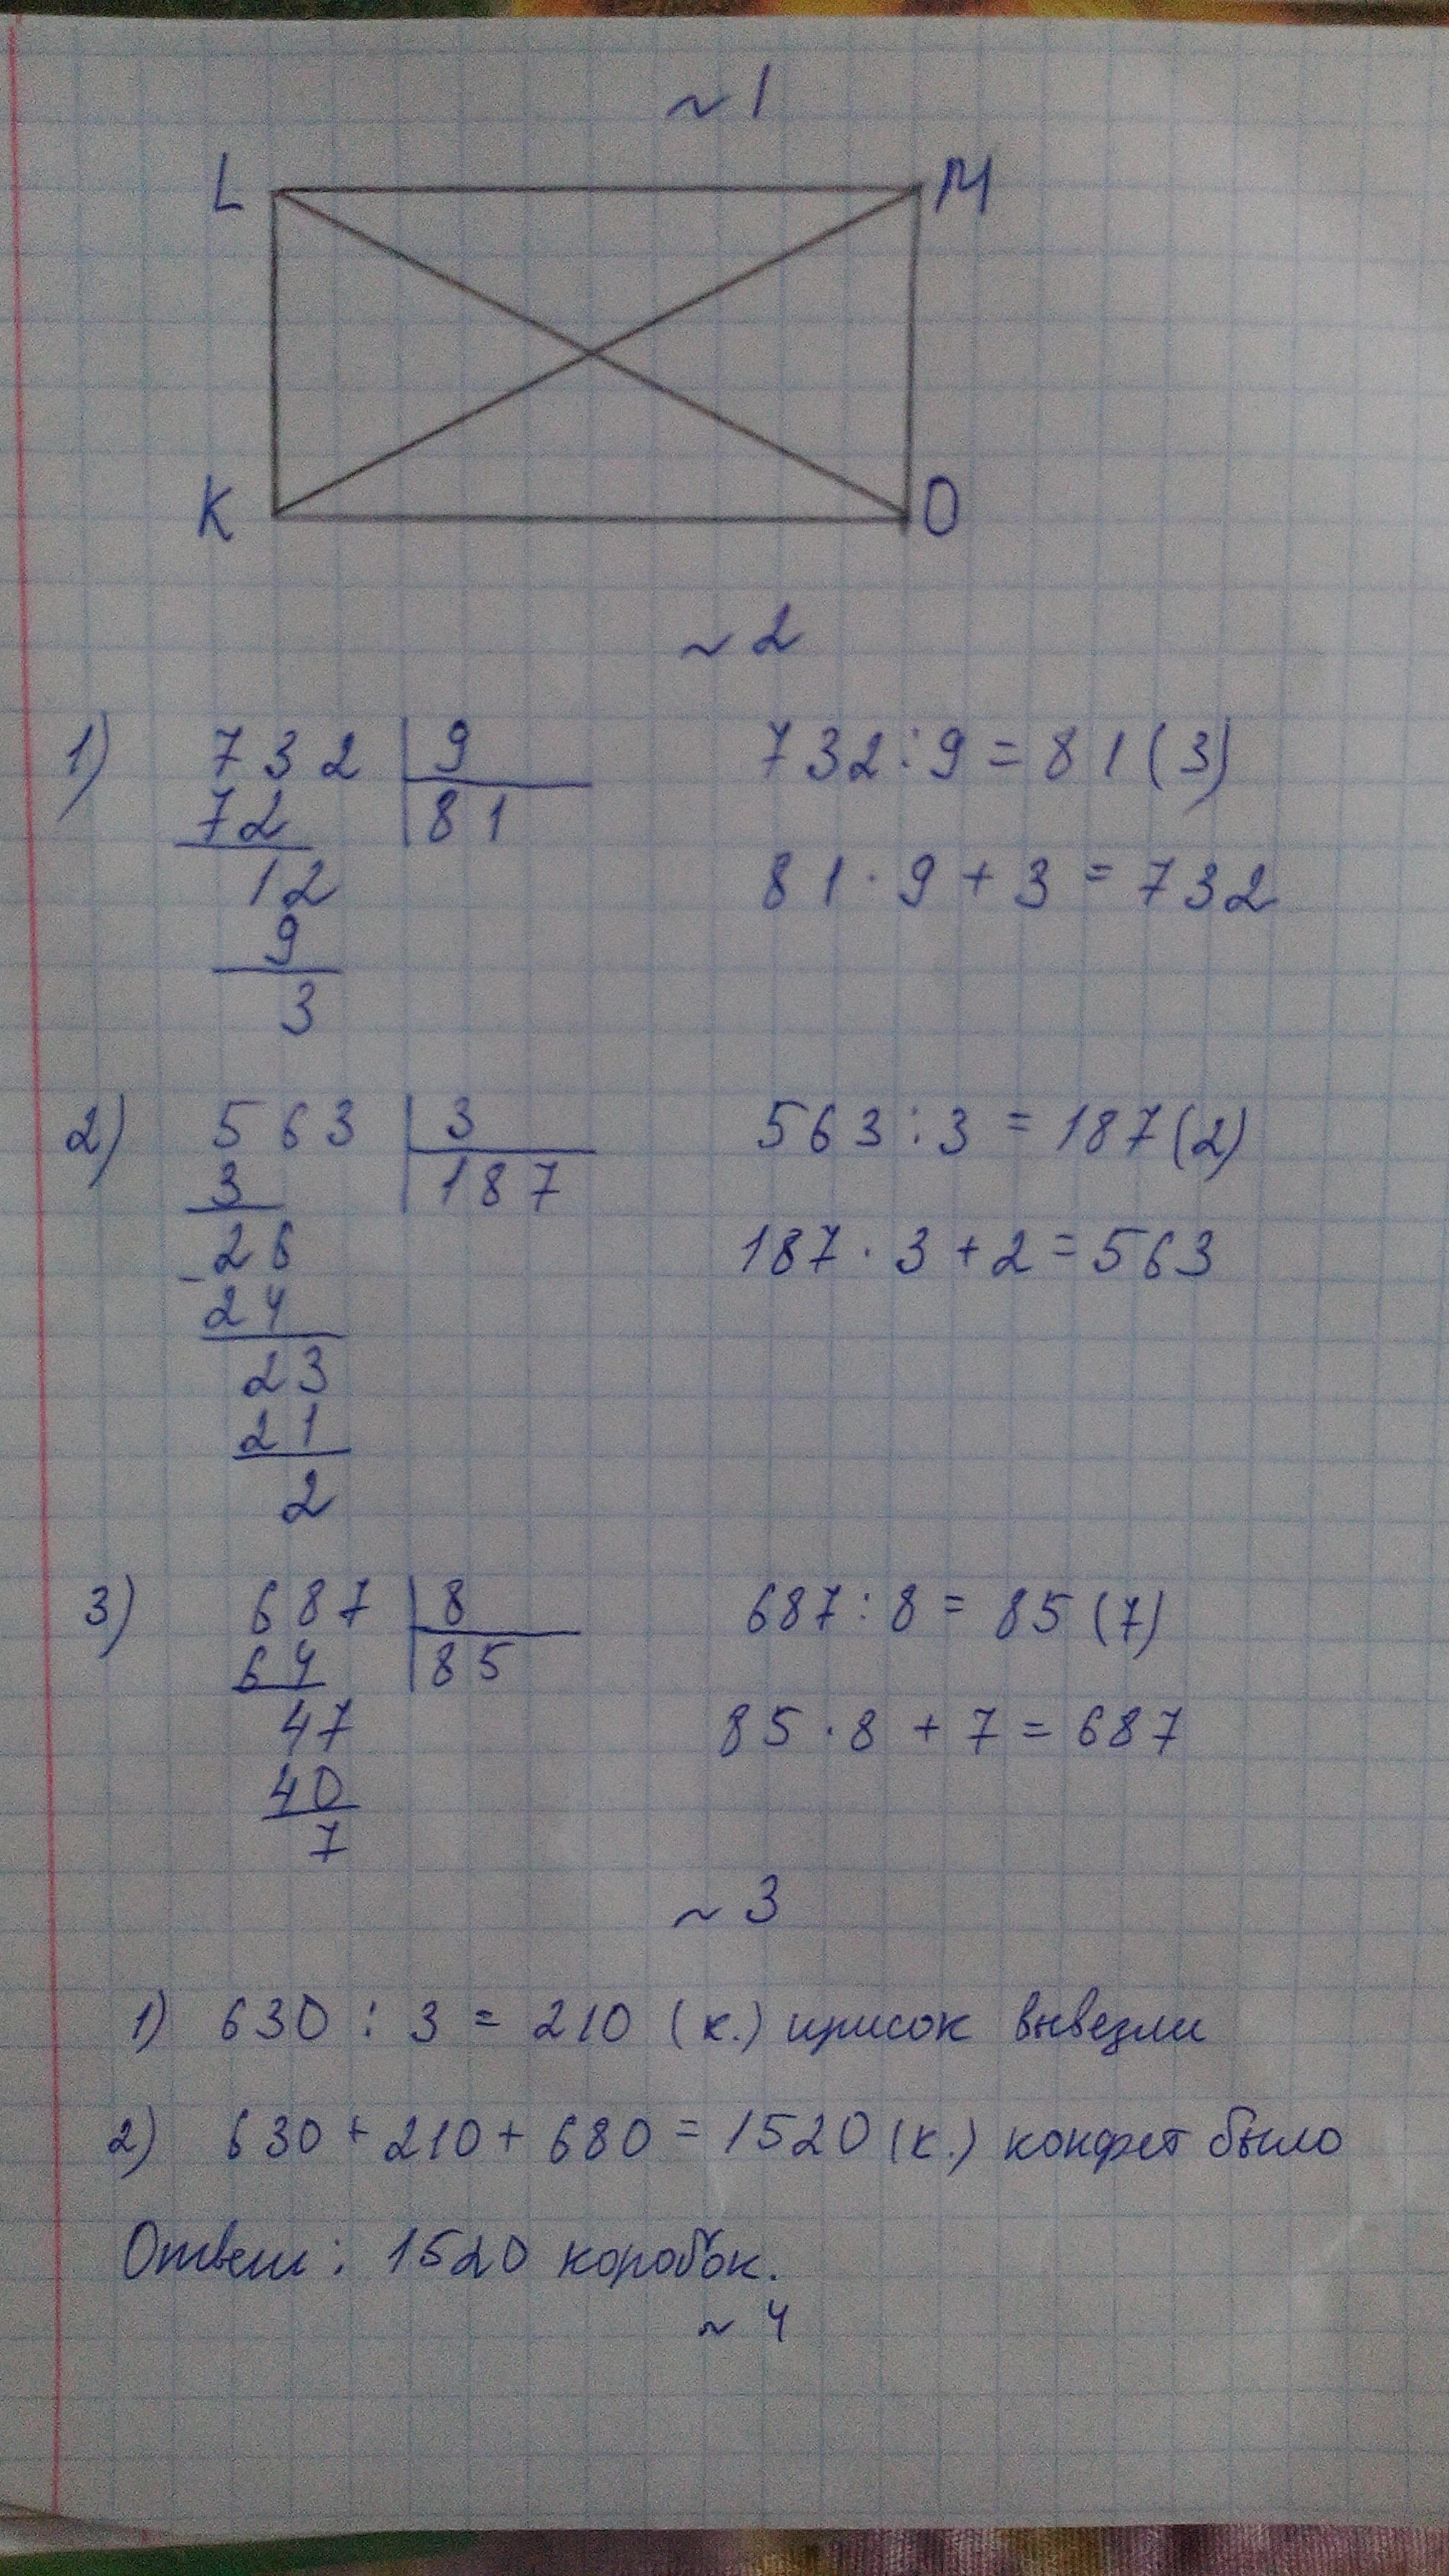 ~ 1
L M
K O
~ 2
1) 732 | 9 732 : 9 = 81 (3)
72 81
12 81 · 9 + 3 = 732
9
3
2) 563 | 3 563 : 3 = 187 (2)
3 187
- 26 187 · 3 + 2 = 563
24
23
21
2
3) 687 | 8 687 : 8 = 85 (7)
64 85
47 85 · 8 + 7 = 687
40
7
~ 3
1) 630 : 3 = 210 (к.) ирисок вывезли
2) 630 + 210 + 680 = 1520 (к.) конфет было
Ответ: 1520 коробок.
~ 4